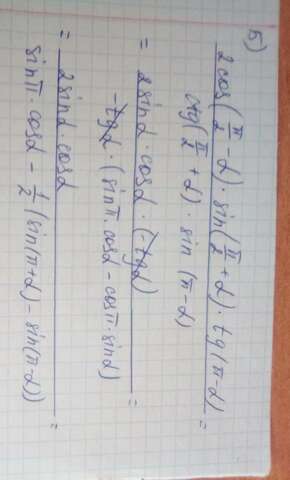 5)
2cos(π/2 - α) · sin(π/2 + α) · tg(π - α)
ctg(π/2 + α) · sin(π - α) =
= 2sinα · cosα · (-tgα)
-tgα · (sinπ · cosα - cosπ · sinα) =
= 2sinα · cosα
sinπ · cosα - 1/2(sin(π+α) - sin(π-α)) =